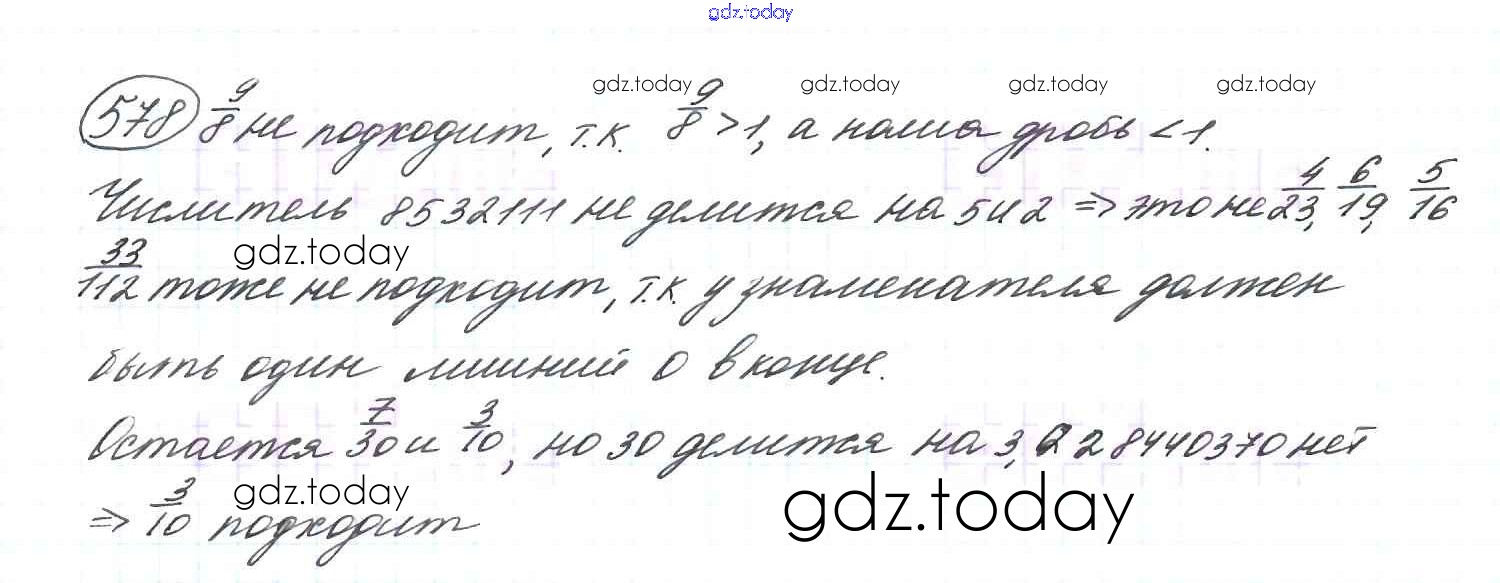 gdz.today
gdz.today gdz.today gdz.today gdz.today
578 9/8 не подходит, т.к. 9/8 > 1, а наша дробь < 1.
Числитель 8532111 не делится на 5 и 2 => это не 4/23, 6/19, 5/16
33/112 тоже не подходит, т.к. у знаменателя должен
gdz.today
быть один лишний 0 в конце.
Остается 7/30 и 3/10, но 30 делится на 3, а 28440370 нет
=> 3/10 подходит
gdz.today
gdz.today